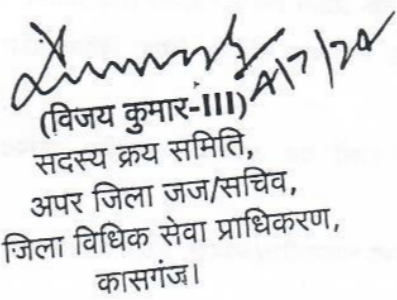 4/7/24
(विजय कुमार-III)
सदस्य क्रय समिति,
अपर जिला जज/सचिव,
जिला विधिक सेवा प्राधिकरण,
कासगंज।